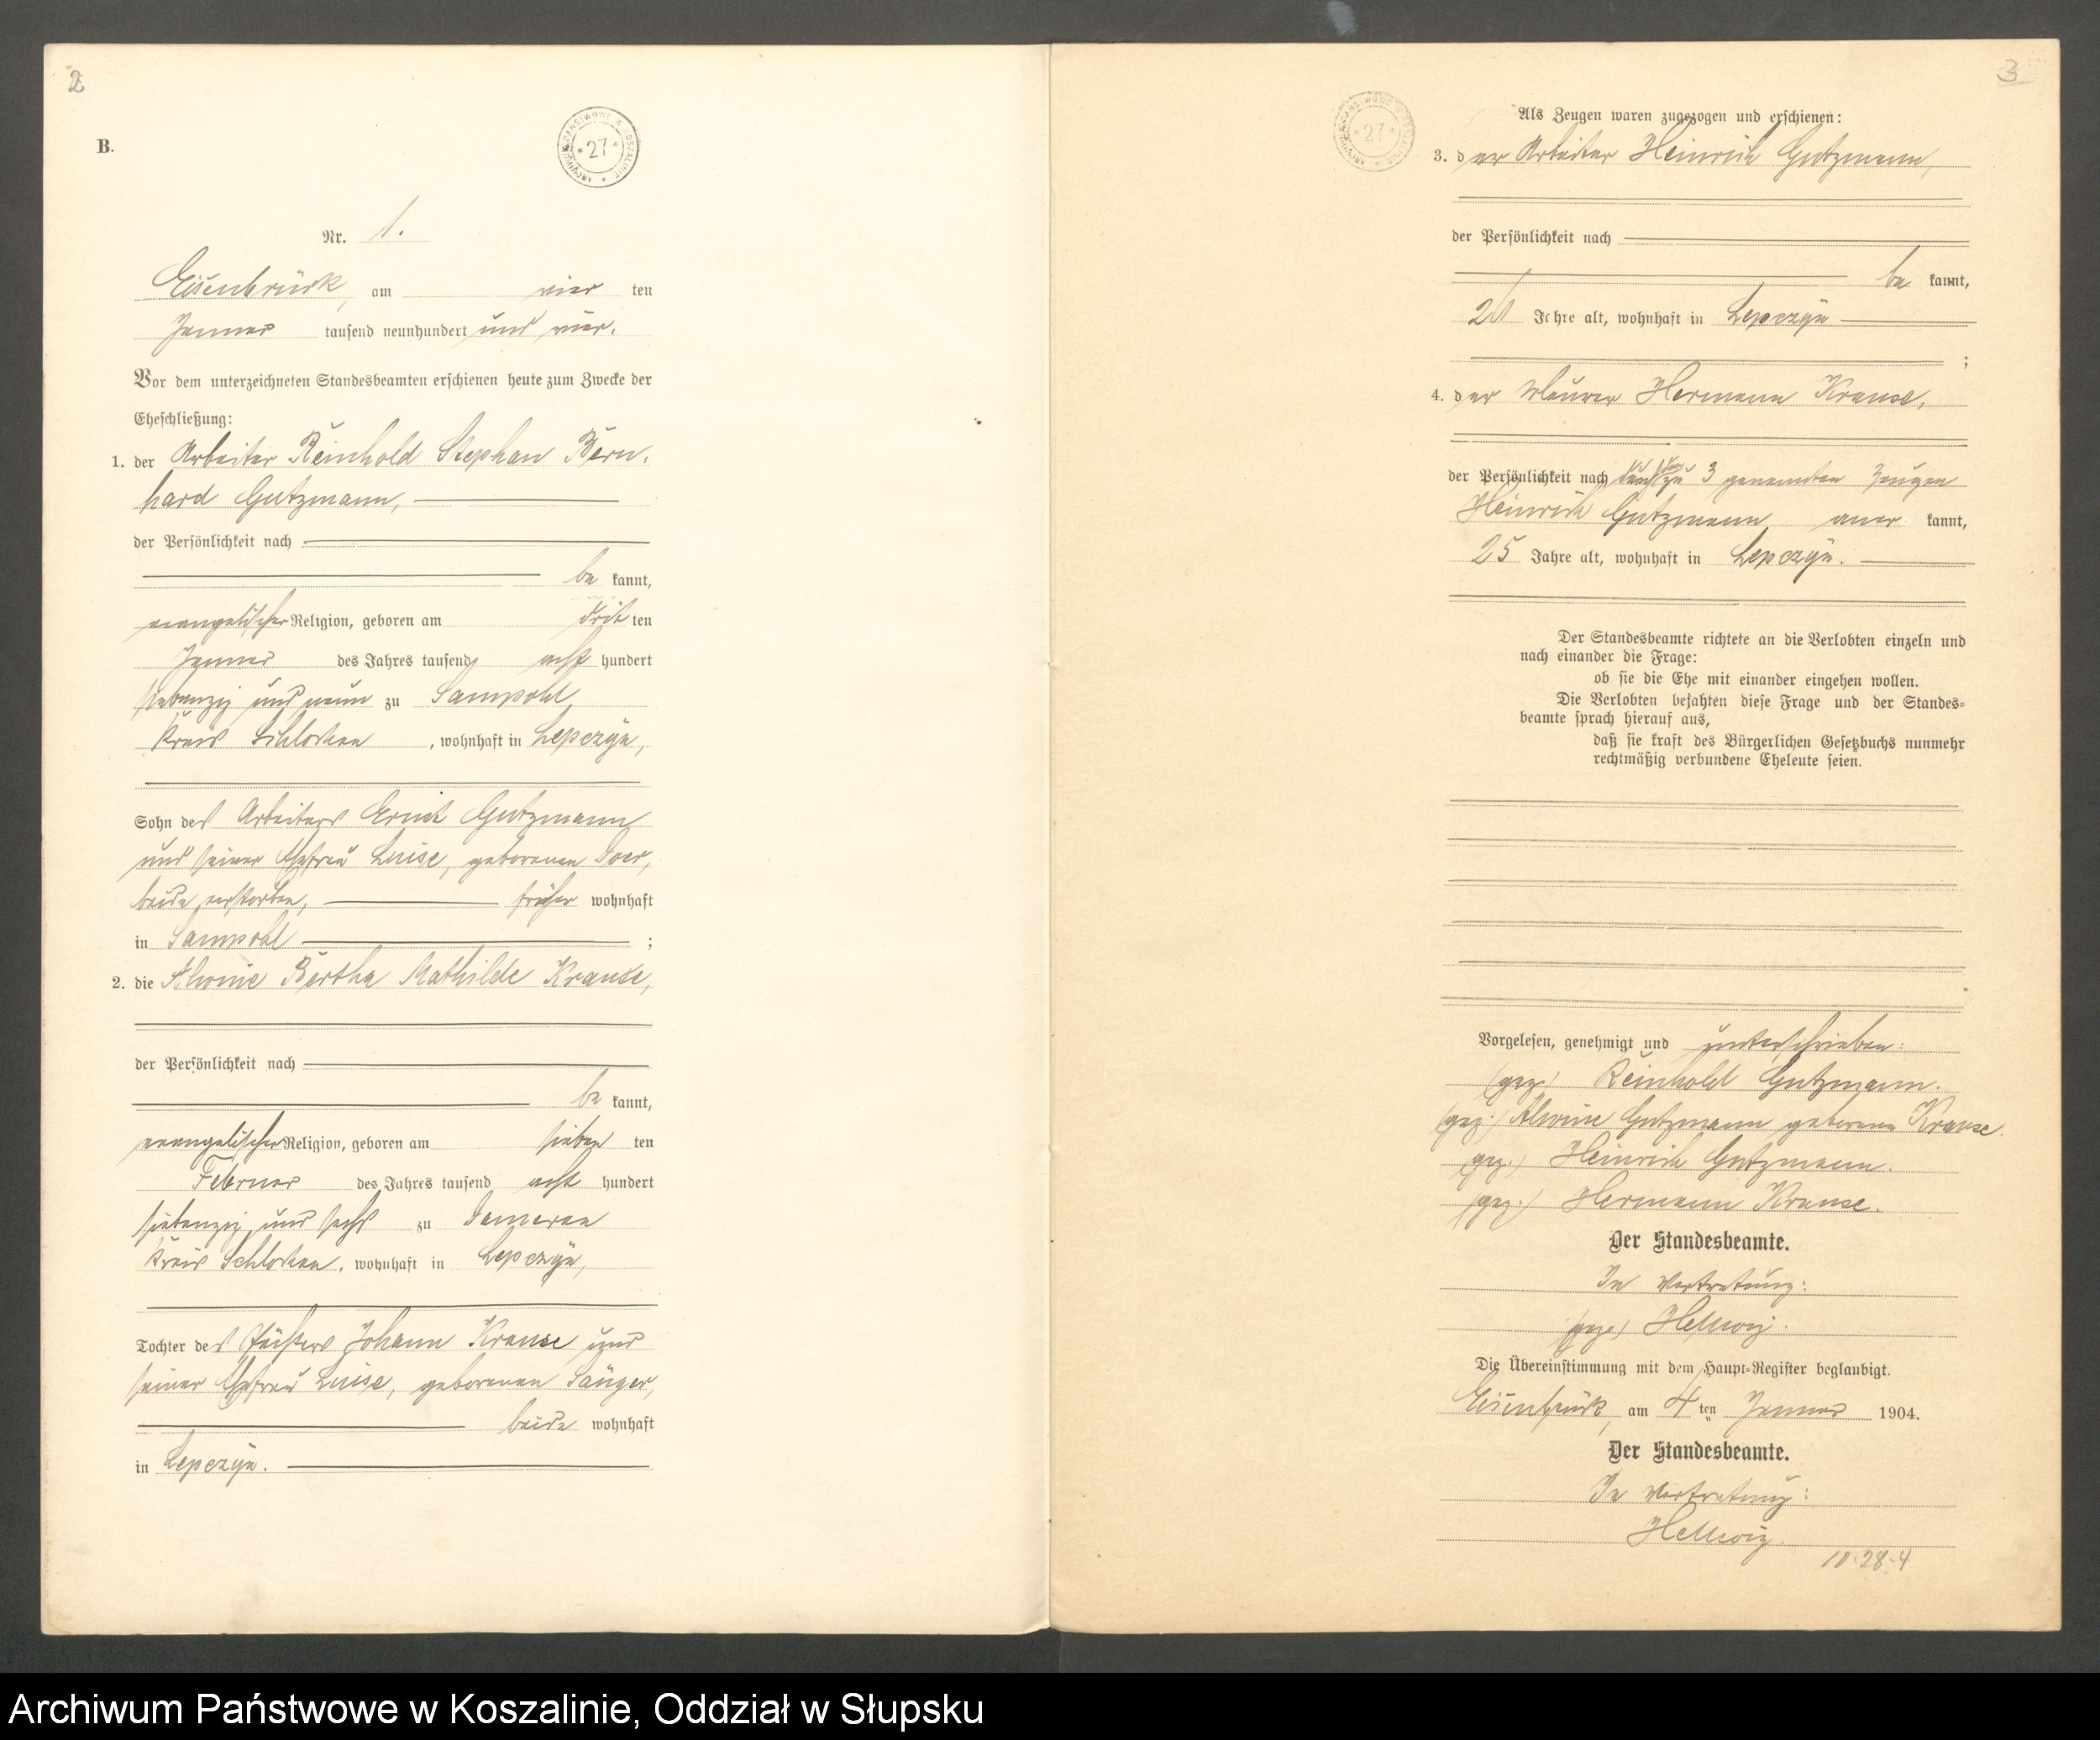 2
B.
ARCHIWUM PAŃSTWOWE W KOSZALINIE
* 27 *
Nr. 1.
Eisenbrück, am vier ten
Januar tausend neunhundert und vier.
Vor dem unterzeichneten Standesbeamten erschienen heute zum Zwecke der
Eheschließung:
1. der Arbeiter Reinhold Stephan Bern-
hard Gutzmann,
der Persönlichkeit nach
be kannt,
evangelischer Religion, geboren am drit ten
Januar des Jahres tausend acht hundert
siebenzig und neun zu Sampohl
Kreis Schlochau, wohnhaft in Lepczyn,
Sohn des Arbeiters Ernst Gutzmann
und seiner Ehefrau Luise, geborenen
beide verstorben, früher wohnhaft
in Sampohl ;
2. die Alwine Bertha Mathilde Krause,
der Persönlichkeit nach
be kannt,
evangelischer Religion, geboren am sieben ten
Februar des Jahres tausend acht hundert
siebenzig und sechs zu Damerau
Kreis Schlochau, wohnhaft in Lepczyn,
Tochter des Johann Krause und
seiner Ehefrau Luise, geborenen Sänger,
beide wohnhaft
in Lepczyn.
3
ARCHIWUM PAŃSTWOWE W KOSZALINIE
* 27 *
Als Zeugen waren zugezogen und erschienen:
3. der Arbeiter Heinrich Gutzmann,
der Persönlichkeit nach
be kannt,
Jahre alt, wohnhaft in Lepczyn
;
4. der Maurer Hermann Krause,
der Persönlichkeit nach durch den zu 3 genannten Zeugen
Heinrich Gutzmann aner kannt,
25 Jahre alt, wohnhaft in Lepczyn.
Der Standesbeamte richtete an die Verlobten einzeln und
nach einander die Frage:
ob sie die Ehe mit einander eingehen wollen.
Die Verlobten bejahten diese Frage und der Standes-
beamte sprach hierauf aus,
daß sie kraft des Bürgerlichen Gesetzbuchs nunmehr
rechtmäßig verbundene Eheleute seien.
Vorgelesen, genehmigt und unterschrieben:
(gez.) Reinhold Gutzmann.
(gez.) Alwine Gutzmann geborene Krause.
(gez.) Heinrich Gutzmann.
(gez.) Hermann Krause.
Der Standesbeamte.
In Vertretung:
(gez.) Hellwig.
Die Übereinstimmung mit dem Haupt-Register beglaubigt.
Eisenbrück, am 4 ten Januar 1904.
Der Standesbeamte.
In Vertretung:
Hellwig.
10-28-4
Archiwum Państwowe w Koszalinie, Oddział w Słupsku